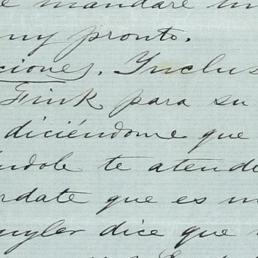 e mandaré un
uy pronto.
ciones. Inclus
Fink para su
diciéndome que
ndole te atende
rdate que es m
uyler dice que